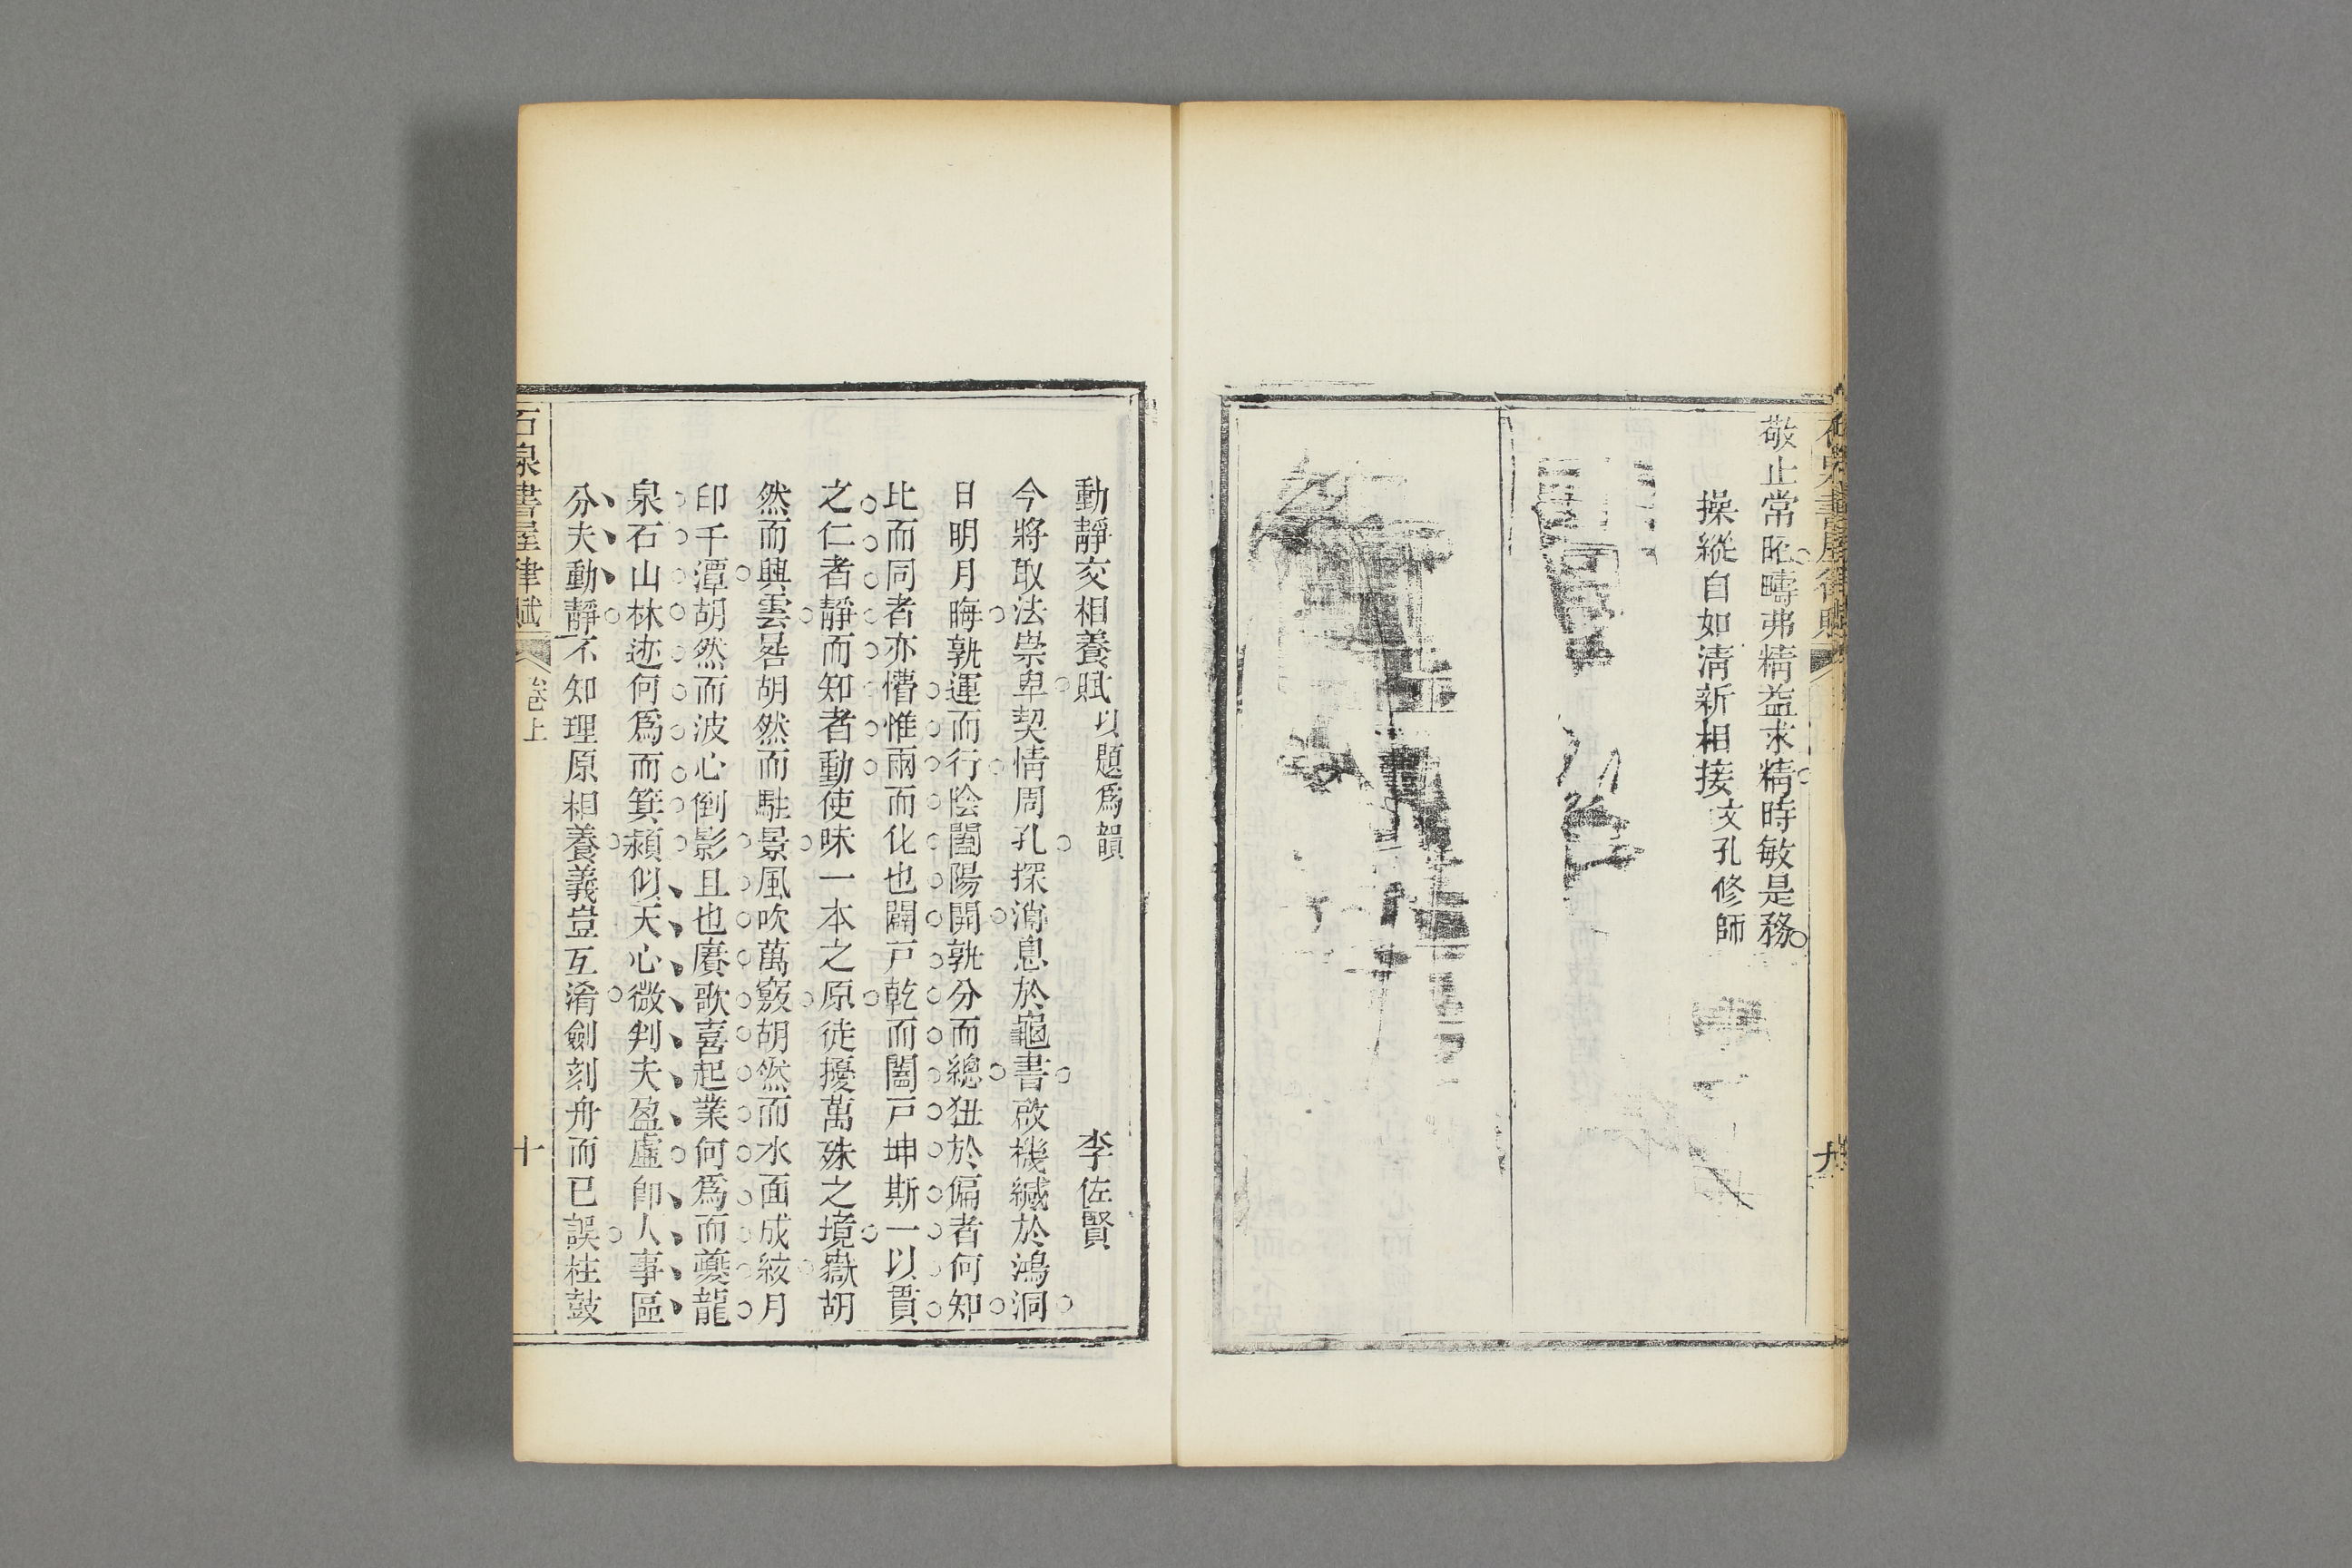 敬止常昭疇弗精益求精時敏是務
操縱自如清新相接文孔修師
九
動靜交相養賦以題爲韻 李佐賢
今將取法崇卑契情周孔探消息於龜書啟機緘於鴻洞
日明月晦孰運而行陰闔陽開孰分而總狃於偏者何知
比而同者亦懵惟兩而化也闢戸乾而闔戸坤斯一以貫
之仁者靜而知者動使昧一本之原徒擾萬殊之境嶽胡
然而興雲晷胡然而駐景風吹萬竅胡然而水面成紋月
印千潭胡然而波心倒影且也賡歌喜起業何爲而夔龍
泉石山林迹何爲而箕潁似天心微判夫盈虛卽人事區
分夫動靜不知理原相養義豈互淆劍刻舟而已誤柱鼓
石泉書屋律賦 卷上 十